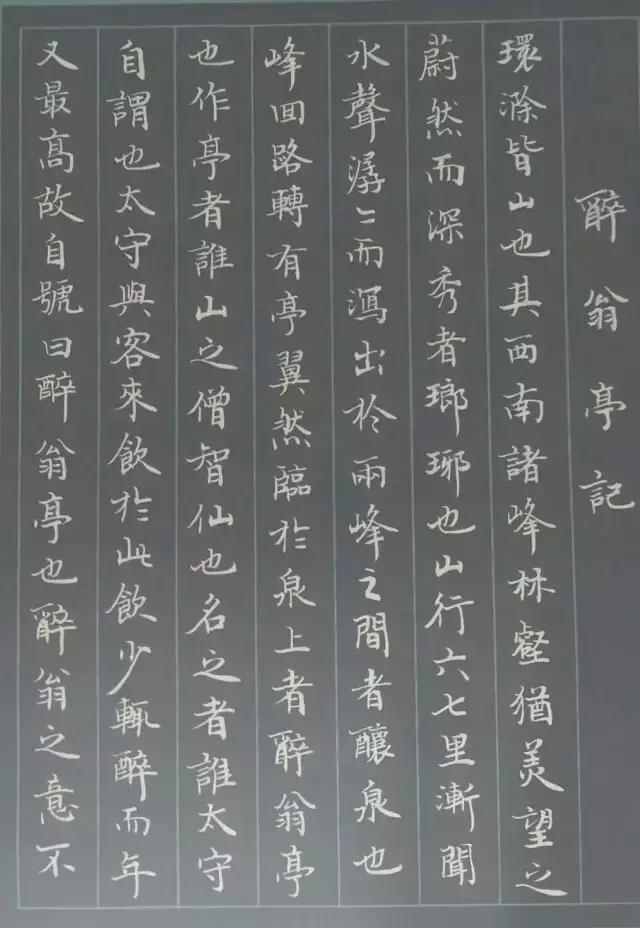 醉翁亭記
環滁皆山也其西南諸峰林壑猶美望之
蔚然而深秀者瑯琊也山行六七里漸聞
水聲潺〻而瀉出於兩峰之間者釀泉也
峰回路轉有亭翼然臨於泉上者醉翁亭
也作亭者誰山之僧智仙也名之者誰太守
自謂也太守與客來飲於此飲少輒醉而年
又最高故自號曰醉翁亭也醉翁之意不